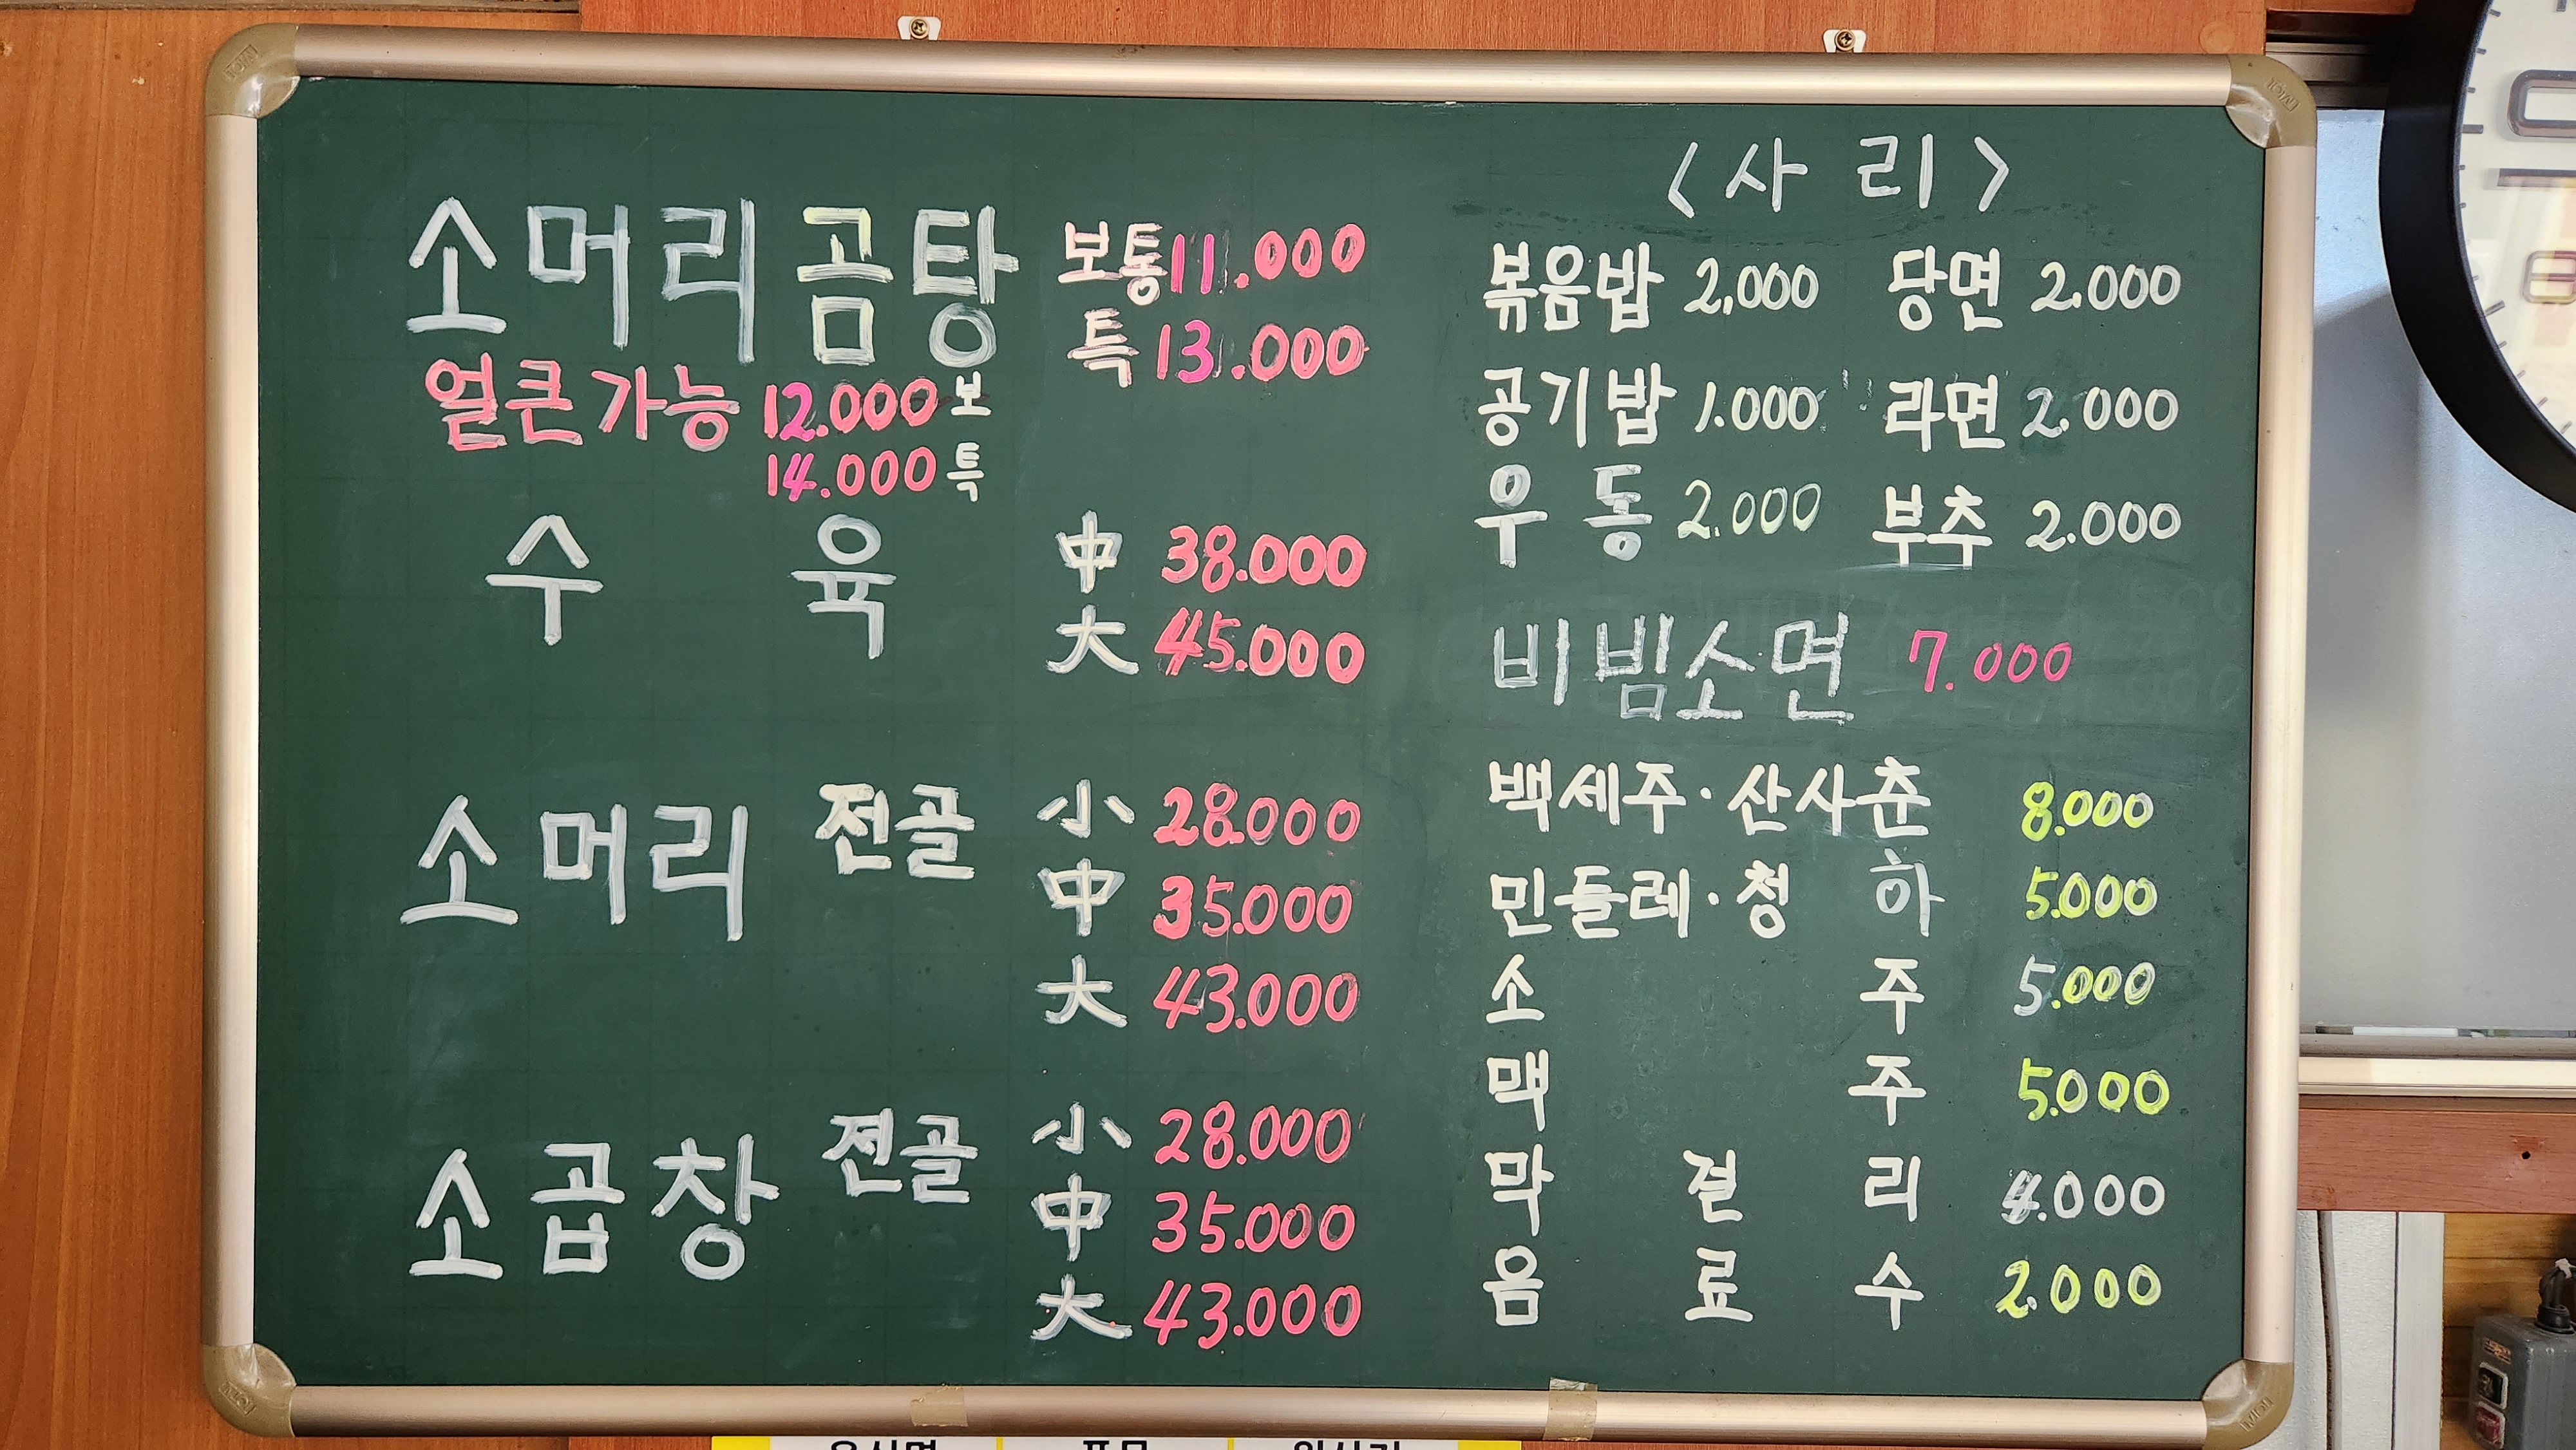 소머리곰탕 보통 11.000
특 13.000
얼큰가능 12.000 보
14.000 특
수육 中 38.000
大 45.000
소머리 전골 小 28.000
中 35.000
大 43.000
소곱창 전골 小 28.000
中 35.000
大 43.000
<사리>
볶음밥 2,000 당면 2.000
공기밥 1.000 라면 2.000
우동 2.000 부추 2.000
비빔소면 7.000
백세주·산사춘 8.000
민들레·청하 5.000
소주 5.000
맥주 5.000
막걸리 4.000
음료수 2.000